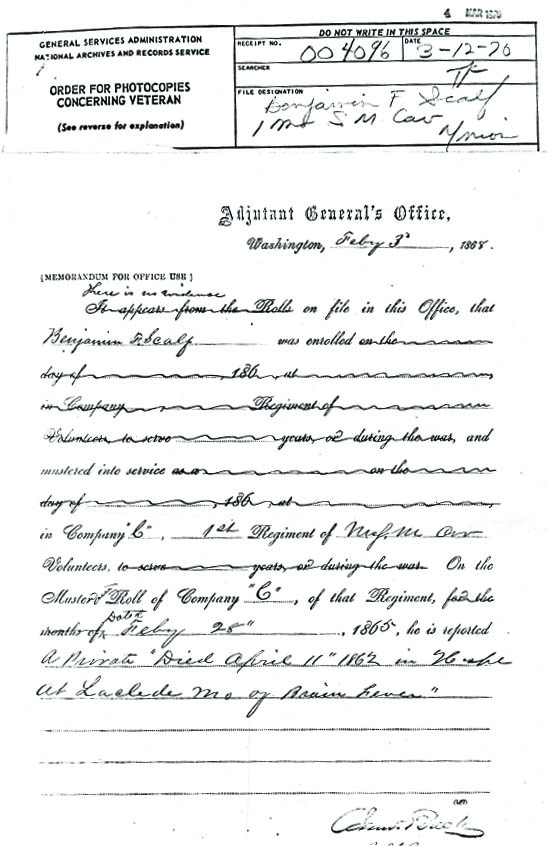 4 MAR 1970
DO NOT WRITE IN THIS SPACE
GENERAL SERVICES ADMINISTRATION
NATIONAL ARCHIVES AND RECORDS SERVICE
ORDER FOR PHOTOCOPIES
CONCERNING VETERAN
(See reverse for explanation)
RECEIPT NO.
004096
DATE
3-12-70
SEARCHER
FILE DESIGNATION
Benjamin F Scalf
1 Mo S M Cav
Union
Adjutant General's Office,
Washington, Feby 3d, 1868.
[MEMORANDUM FOR OFFICE USE]
There is no evidence
It appears from the Rolls on file in this Office, that
Benjamin F. Scalf was enrolled on the
day of , 186 , at ,
in Company , Regiment of
Volunteers, to serve years, or during the war, and
mustered into service as a on the
day of , 186 , at ,
in Company "C", 1st Regiment of
Volunteers, to serve years, or during the war. On the
Muster Roll of Company "C", of that Regiment, for the
months of dated Feby 28", 1865, he is reported
A Private "Died April 11" 1862 in
At Laclede Mo of Brain fever"